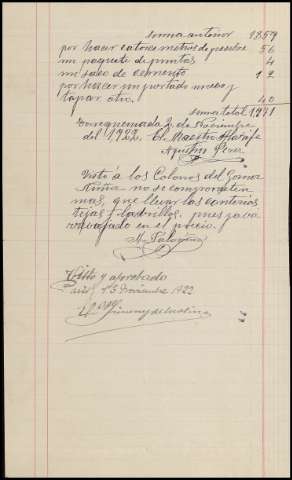 suma anterior 1859
por hacer catorce metros de pesebre 56
un paquete de puntas 4
un saco de cemento 12
por hacer un portado nuevo y
tapar otro. 40
suma total 1971
Torquemada 2 de Noviembre
del 1922. El Maestro Alarife
Agustin Perez
Visto á los Colonos del Gomez
no se comprometen
mas, que llevar los
tejas y ladrillos, pues para
rebajado en el precio.
Visto y aprobado
15 Noviembre 1922